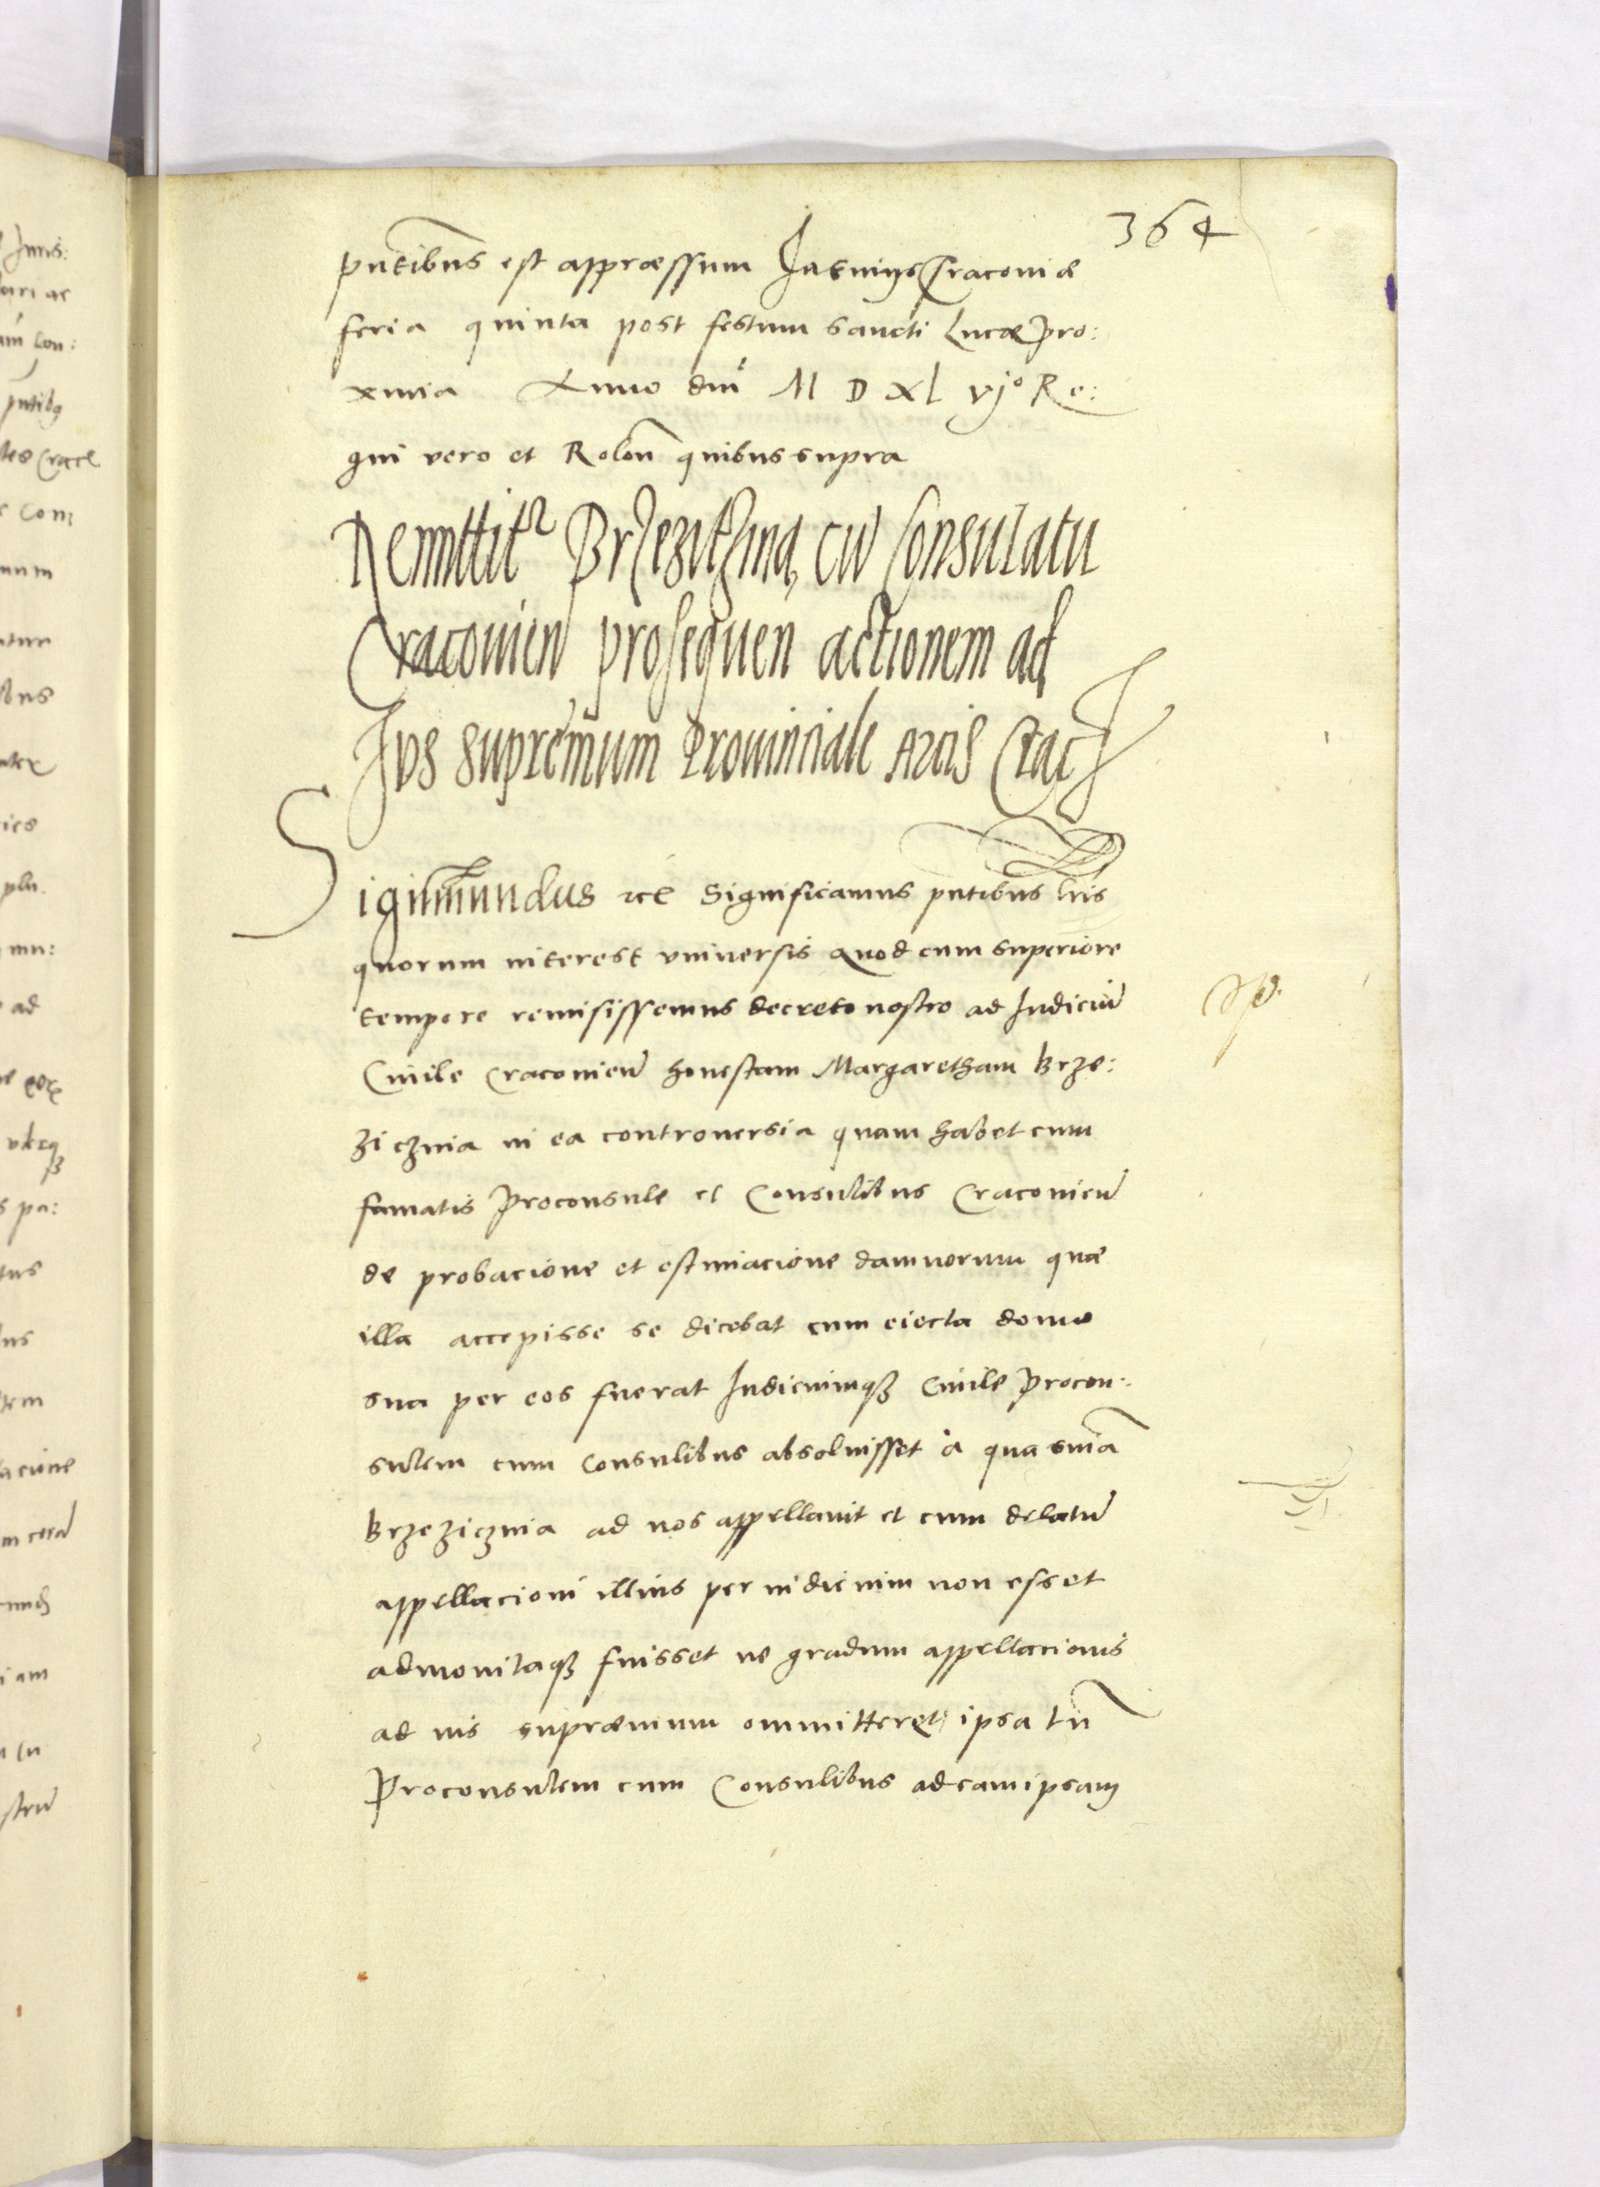 364
pntibus est appræssum Datum Cracoviæ
feria quinta post festum sancti Lucæ pro:
xima Anno dni M D XL vjo Re:
gni vero et Rolon quibus supra
Remittitr Brzezitzina cu Consulatu
Cracovien prosequen actionem ad
Ius supremum Provinciale Arcis Crac
Sigismundus etc Significamus pntibus lris
quorum interest universis Quod cum superiore
tempore remisissemus decreto nostro ad Iudiciu
Civile Cracovien honestam Margaretham Brze:
zicznia in ea controversia quam habet cum
famatis Proconsule et Consulibus Cracovien
de probacione et estimacione damnorum quæ
illa accepisse se dicebat cum eiecta domo
sua per eos fuerat Iudiciumq Civile Procon:
sulem cum Consulibus absolvisset à qua snia
Brzezicznia ad nos appellavit et cum delatu
appellacioni illius per iudicium non esset
admonitaq fuisset ne gradum appellacionis
ad ius supræmum ommitteret, ipsa tn
Proconsulem cum Consulibus ad eam ipsam